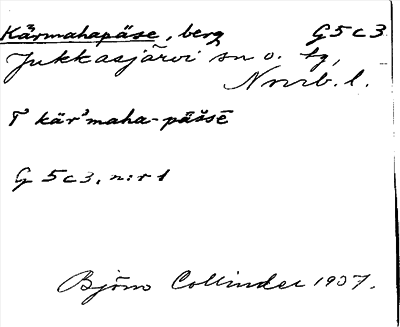 Kärmahapäse, berg G5c3
Jukkasjärvi sn o. tg,
Nrrb. l.
T kär³maha-päšsē
G 5c3, n:r 1
Björn Collinder 1937.